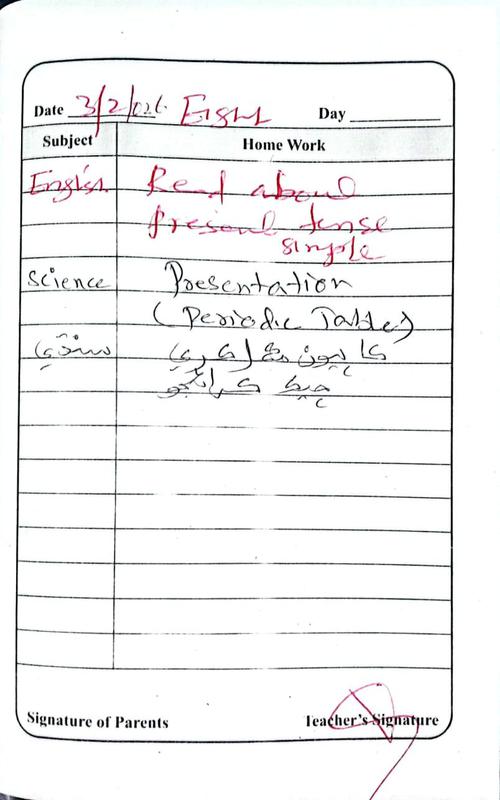 Date 3/2/026 Eight Day
Subject Home Work
English Read about
present tense
simple
Science Presentation
(Periodic Table)
سنڌي ڪاپيون مڪمل ڪري
چيڪ ڪرائجو
Signature of Parents Teacher's Signature